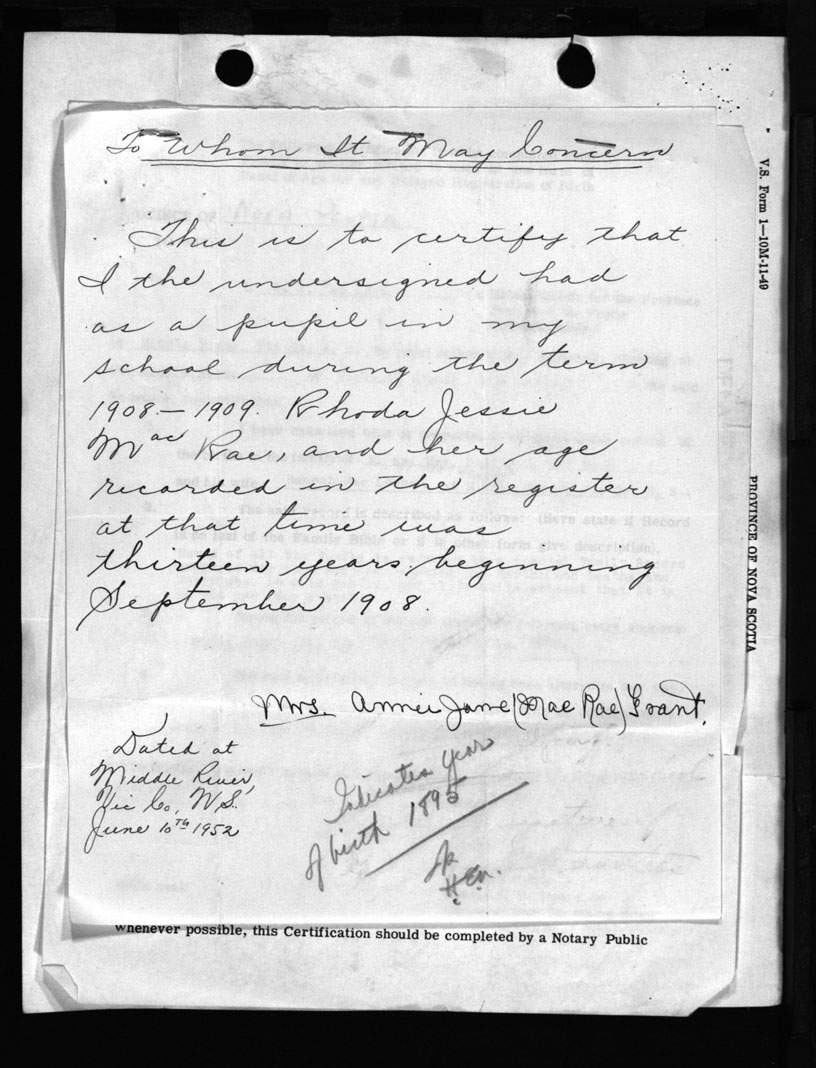 To Whom It May Concern
This is to certify that
I the undersigned had
as a pupil in my
school during the term
1908 – 1909. Rhoda Jessie
Mac Rae, and her age
recorded in the register
at that time was
thirteen years, beginning
September 1908.
Mrs. Annie Jane (Mac Rae) Grant.
Dated at
Middle River,
Vic Co, N.S.
June 10TH 1952
Indicates year
of birth 1895
whenever possible, this Certification should be completed by a Notary Public
V.S. Form 1—10M-11-49
PROVINCE OF NOVA SCOTIA